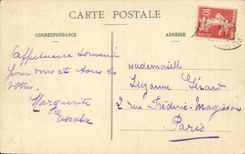 CARTE POSTALE
CORRESPONDANCE
ADRESSE
Affectueux souvenir
pour vous et tous les
vôtres.
Marguerite
Mademoiselle
Suzanne Gérard
2 rue Frédéric-Magisson
Paris
10